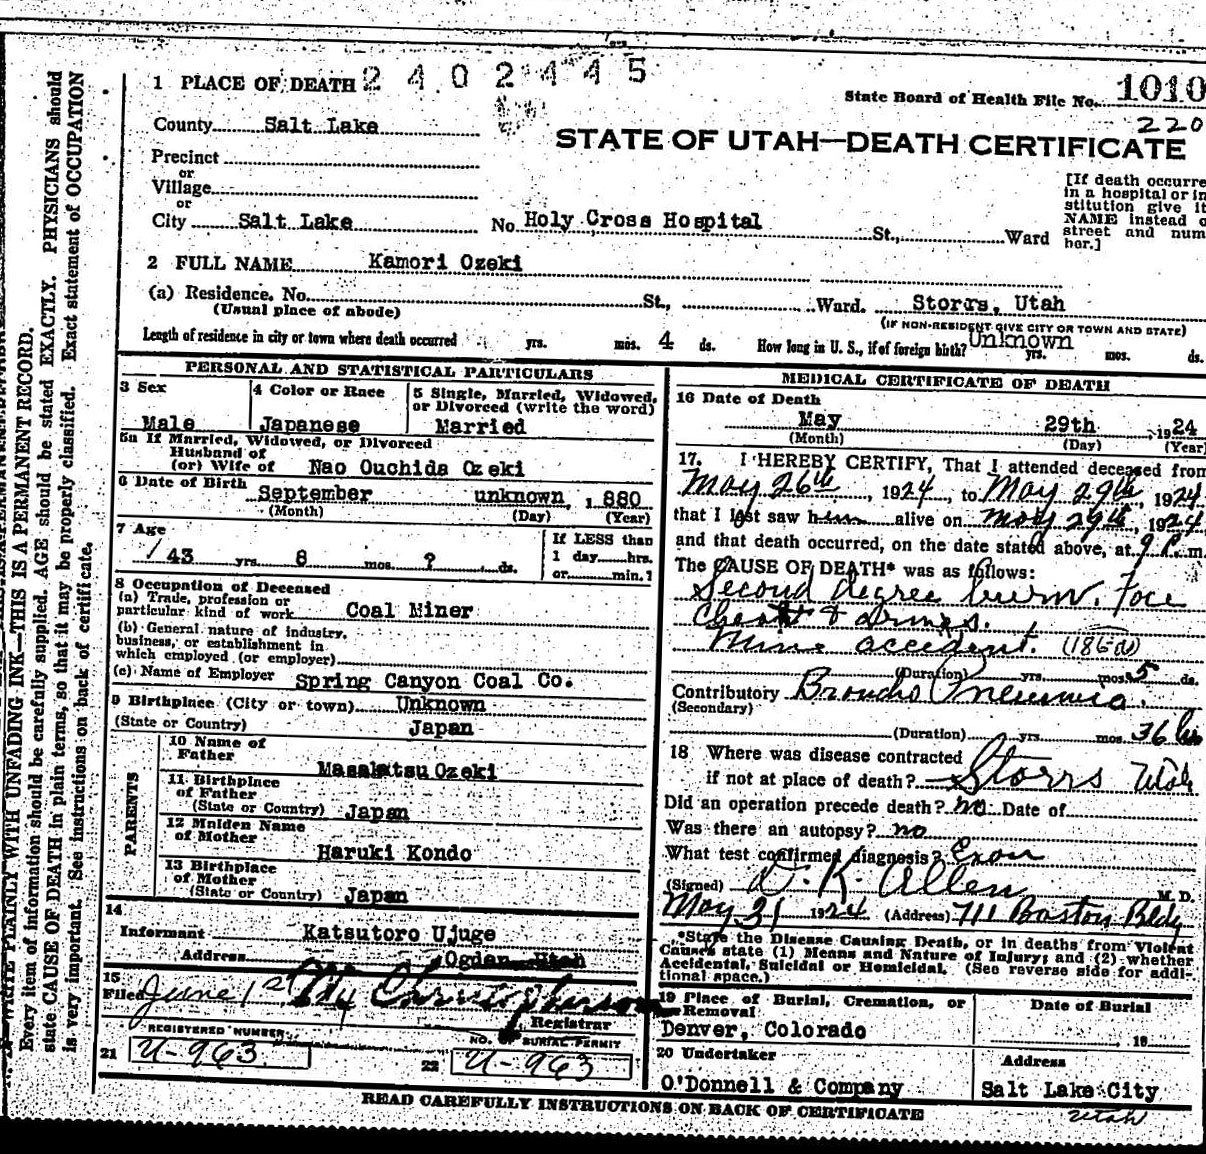 1 PLACE OF DEATH 2402445
State Board of Health File No. 1010
220
County Salt Lake
STATE OF UTAH—DEATH CERTIFICATE
Precinct
or
Village
or
City Salt Lake No. Holy Cross Hospital St., Ward
[If death occurre
in a hospital or in
stitution give it
NAME instead o
street and num
ber.]
2 FULL NAME Kamori Ozeki
(a) Residence. No. St., Ward. Storrs, Utah
(Usual place of abode)
(IF NON-RESIDENT GIVE CITY OR TOWN AND STATE)
Length of residence in city or town where death occurred yrs. mos. 4 ds. How long in U. S., if of foreign birth? Unknown yrs. mos. ds.
PERSONAL AND STATISTICAL PARTICULARS
3 Sex
Male
4 Color or Race
Japanese
5 Single, Married, Widowed,
or Divorced (write the word)
Married
5a If Married, Widowed, or Divorced
Husband of
(or) Wife of Nao Ouchida Ozeki
6 Date of Birth September unknown, 1880
(Month) (Day) (Year)
7 Age
43 yrs. 8 mos. ? ds.
If LESS than
1 day hrs.
or min.?
8 Occupation of Deceased
(a) Trade, profession or
particular kind of work Coal Miner
(b) General nature of industry,
business, or establishment in
which employed (or employer)
(c) Name of Employer Spring Canyon Coal Co.
9 Birthplace (City or town) Unknown
(State or Country) Japan
PARENTS
10 Name of
Father Masakatsu Ozeki
11 Birthplace
of Father
(State or Country) Japan
12 Maiden Name
of Mother
Haruki Kondo
13 Birthplace
of Mother
(State or Country) Japan
14
Informant Katsutoro Ujuge
Address Ogden Utah
15
Filed June 1st Christopherson
Registrar
REGISTERED NUMBER
21 U-963
NO. OF BURIAL PERMIT
22 U-963
MEDICAL CERTIFICATE OF DEATH
16 Date of Death
May 29th, 1924
(Month) (Day) (Year)
17. I HEREBY CERTIFY, That I attended deceased from
May 26th, 1924, to May 29th, 1924
that I last saw him alive on May 29th, 1924,
and that death occurred, on the date stated above, at 9 P. m.
The CAUSE OF DEATH* was as follows:
Second degree burn. Face
Chest & Arms.
Mine accident.
(Duration) yrs. mos. 5 ds.
Contributory Broncho Pneumonia.
(Secondary)
(Duration) yrs. mos. 36 hrs
18 Where was disease contracted
if not at place of death? Storrs Utah
Did an operation precede death? no Date of
Was there an autopsy? no
What test confirmed diagnosis? Exam
(Signed) D. K. Allen M. D.
May 31 1924 (Address) 711 Boston Bldg
*State the Disease Causing Death, or in deaths from Violent
Causes state (1) Means and Nature of Injury; and (2) whether
Accidental, Suicidal or Homicidal. (See reverse side for addi-
tional space.)
19 Place of Burial, Cremation, or
Removal
Denver, Colorado
Date of Burial
19
20 Undertaker
O'Donnell & Company
Address
Salt Lake City
Utah
READ CAREFULLY INSTRUCTIONS ON BACK OF CERTIFICATE
WRITE PLAINLY WITH UNFADING INK—THIS IS A PERMANENT RECORD.
Every item of information should be carefully supplied. AGE should be stated EXACTLY. PHYSICIANS should
state CAUSE OF DEATH in plain terms, so that it may be properly classified. Exact statement of OCCUPATION
is very important. See instructions on back of certificate.